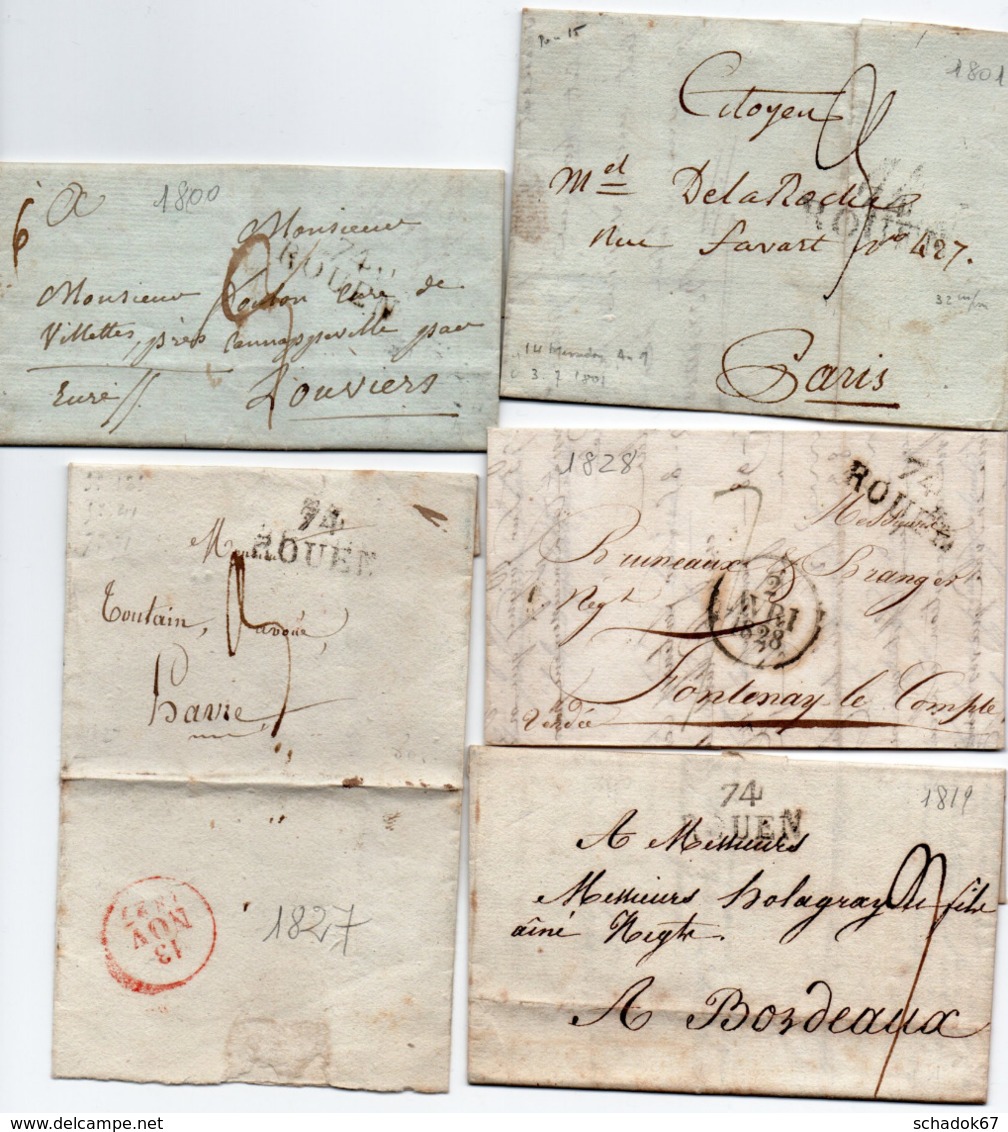 1800
6
Monsieur
74
ROUEN
Monsieur Curé de
Villettes, près par
Eure
Louviers
1801
Citoyen
74
ROUEN
Md DelaRoche
Rue Favart No 427.
32 m/m
14 Messidor An 9
3. 7 1801
Paris
74
ROUEN
Toutain, avoué,
havre
13
NOV
1827
1827
1828
7
74
ROUEN
Messieurs
Bruneaux & Branger
Negt
2
AVRI
1828
Fontenay le Compte
Vendée
74
ROUEN
1819
A Messieurs
Messieurs holagray fils
aîné Negts.
A Bordeaux
schadok67